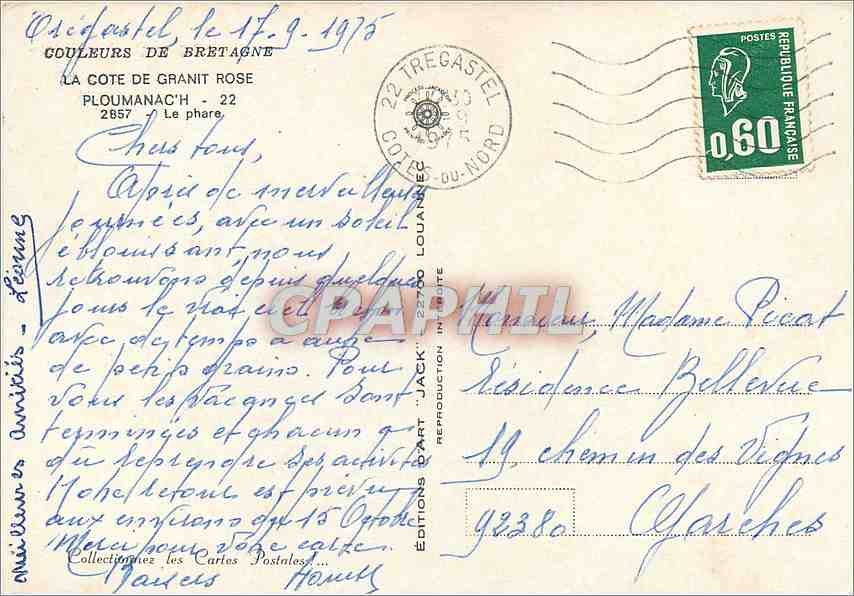 Trégastel, le 17.9.1975
COULEURS DE BRETAGNE
LA COTE DE GRANIT ROSE
PLOUMANAC'H - 22
2857 - Le phare
Chers tous,
Après de merveilleuses
journées, avec un soleil
éblouissant, nous
retrouvons depuis quelques
jours le vrai ciel
avec de temps à autre
de petits grains. Pour
vous les vacances sont
terminées et chacun a
dû reprendre ses activités
Notre retour est prévu
aux environs du 15 Octobre
Merci pour votre carte.
Collectionnez les Cartes Postales!...
Baisers
Meilleures amitiés - Léonne
EDITIONS D'ART "JACK" 22700 LOUANNEC
REPRODUCTION INTERDITE
22 TREGASTEL
COTES-DU-NORD
POSTES
REPUBLIQUE FRANÇAISE
0,60
CPAPHIL
Monsieur, Madame Picat
Résidence Bellevue
19, chemin des Vignes
92380 Garches